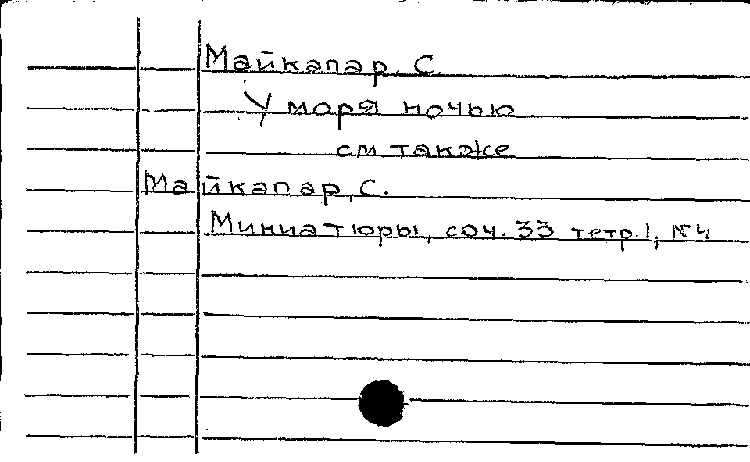 Майкапар, С.
У моря ночью
см также
Майкапар, С.
Миниатюры, соч. 33 тетр. 1, №4